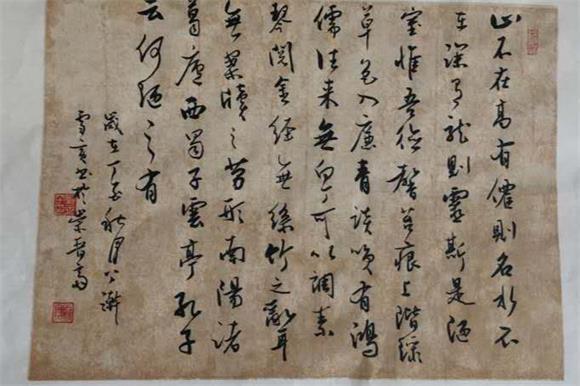 山不在高有僊則名水不
在深有龍則靈斯是陋
室惟吾德馨苔痕上階綠
草色入簾青談笑有鴻
儒往來無白丁可以調素
琴閱金經無絲竹之亂耳
無案牘之勞形南陽諸
葛廬西蜀子雲亭孔子
云何陋之有
歲在丁秋月
書於崇